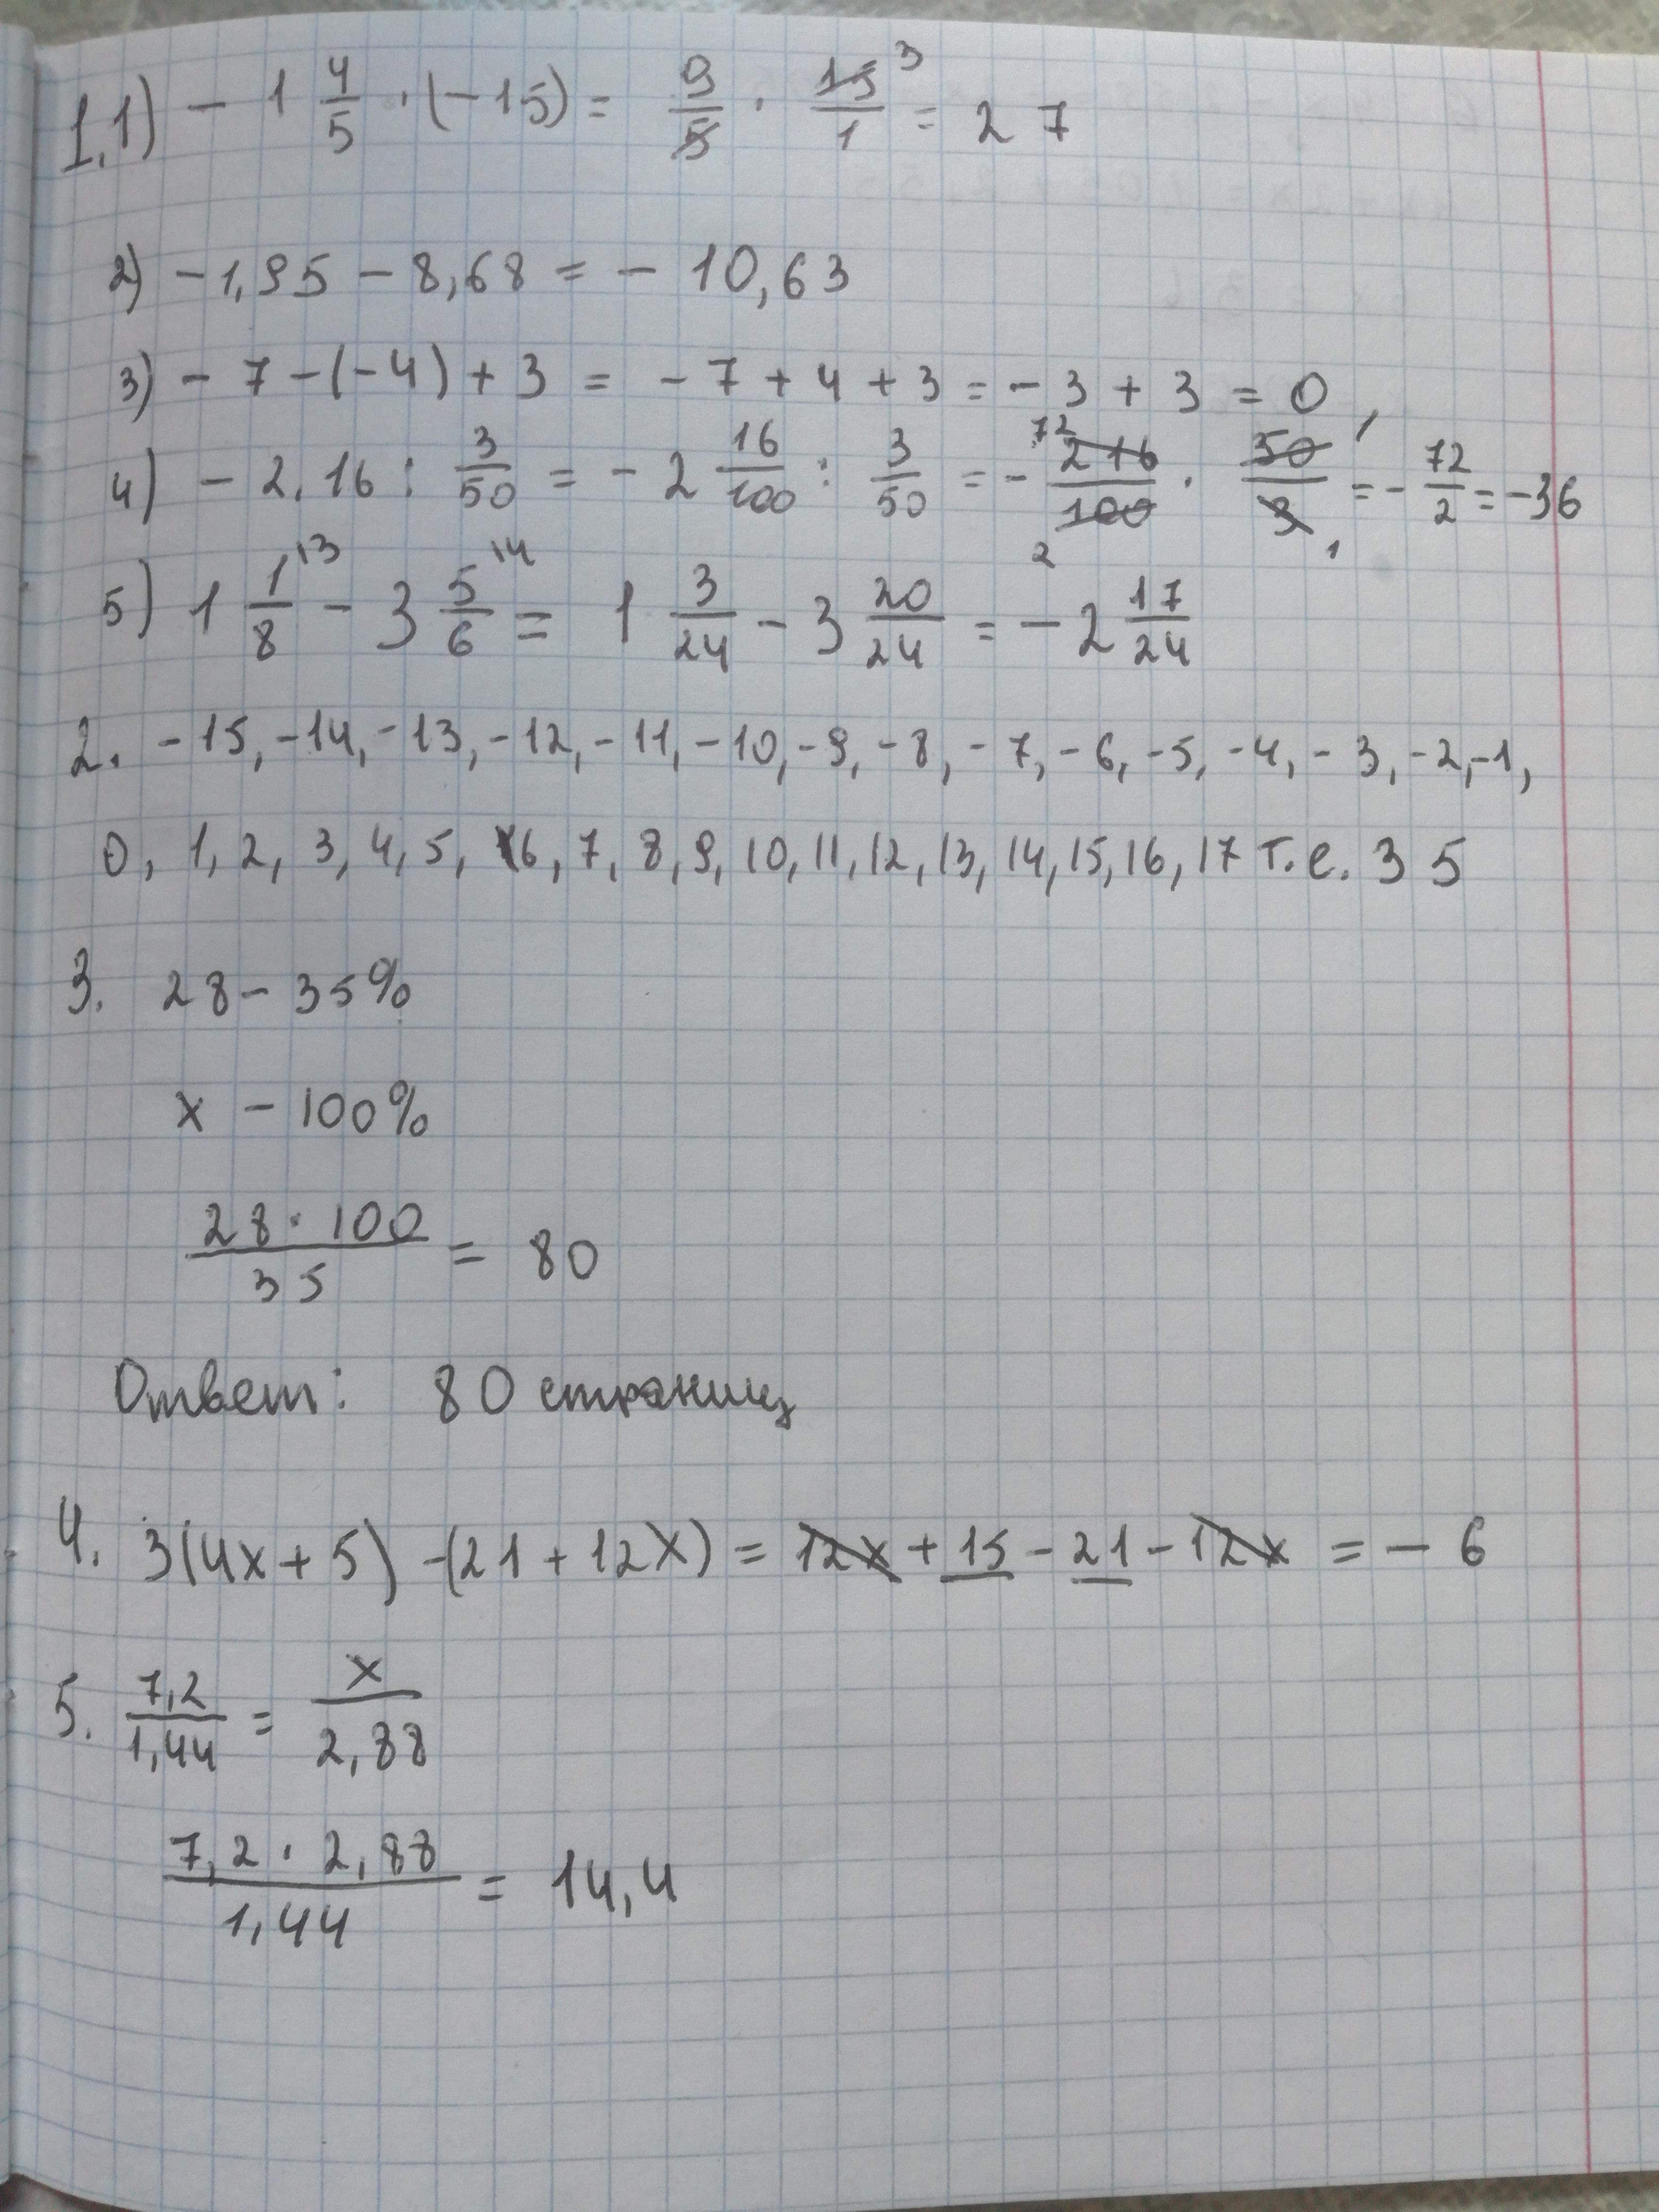 1.1) - 1 4/5 · (-15) = 9/5 · 15/1 3 = 27
2) - 1,95 - 8,68 = - 10,63
3) - 7 - (-4) + 3 = - 7 + 4 + 3 = - 3 + 3 = 0
4) - 2.16 : 3/50 = - 2 16/100 : 3/50 = - 72 216/100 2 · 50/3 1 1 = - 72/2 = -36
5) 1 1/8 \3 - 3 5/6 \4 = 1 3/24 - 3 20/24 = - 2 17/24
2. -15, -14, -13, -12, -11, -10, -9, -8, -7, -6, -5, -4, -3, -2, -1,
0, 1, 2, 3, 4, 5, 6, 7, 8, 9, 10, 11, 12, 13, 14, 15, 16, 17 т.е. 35
3. 28 - 35%
x - 100%
28 · 100/35 = 80
Ответ: 80 страниц
4. 3(4x + 5) - (21 + 12x) = 12x + 15 - 21 - 12x = - 6
5. 7,2/1,44 = x/2,88
7,2 · 2,88/1,44 = 14,4